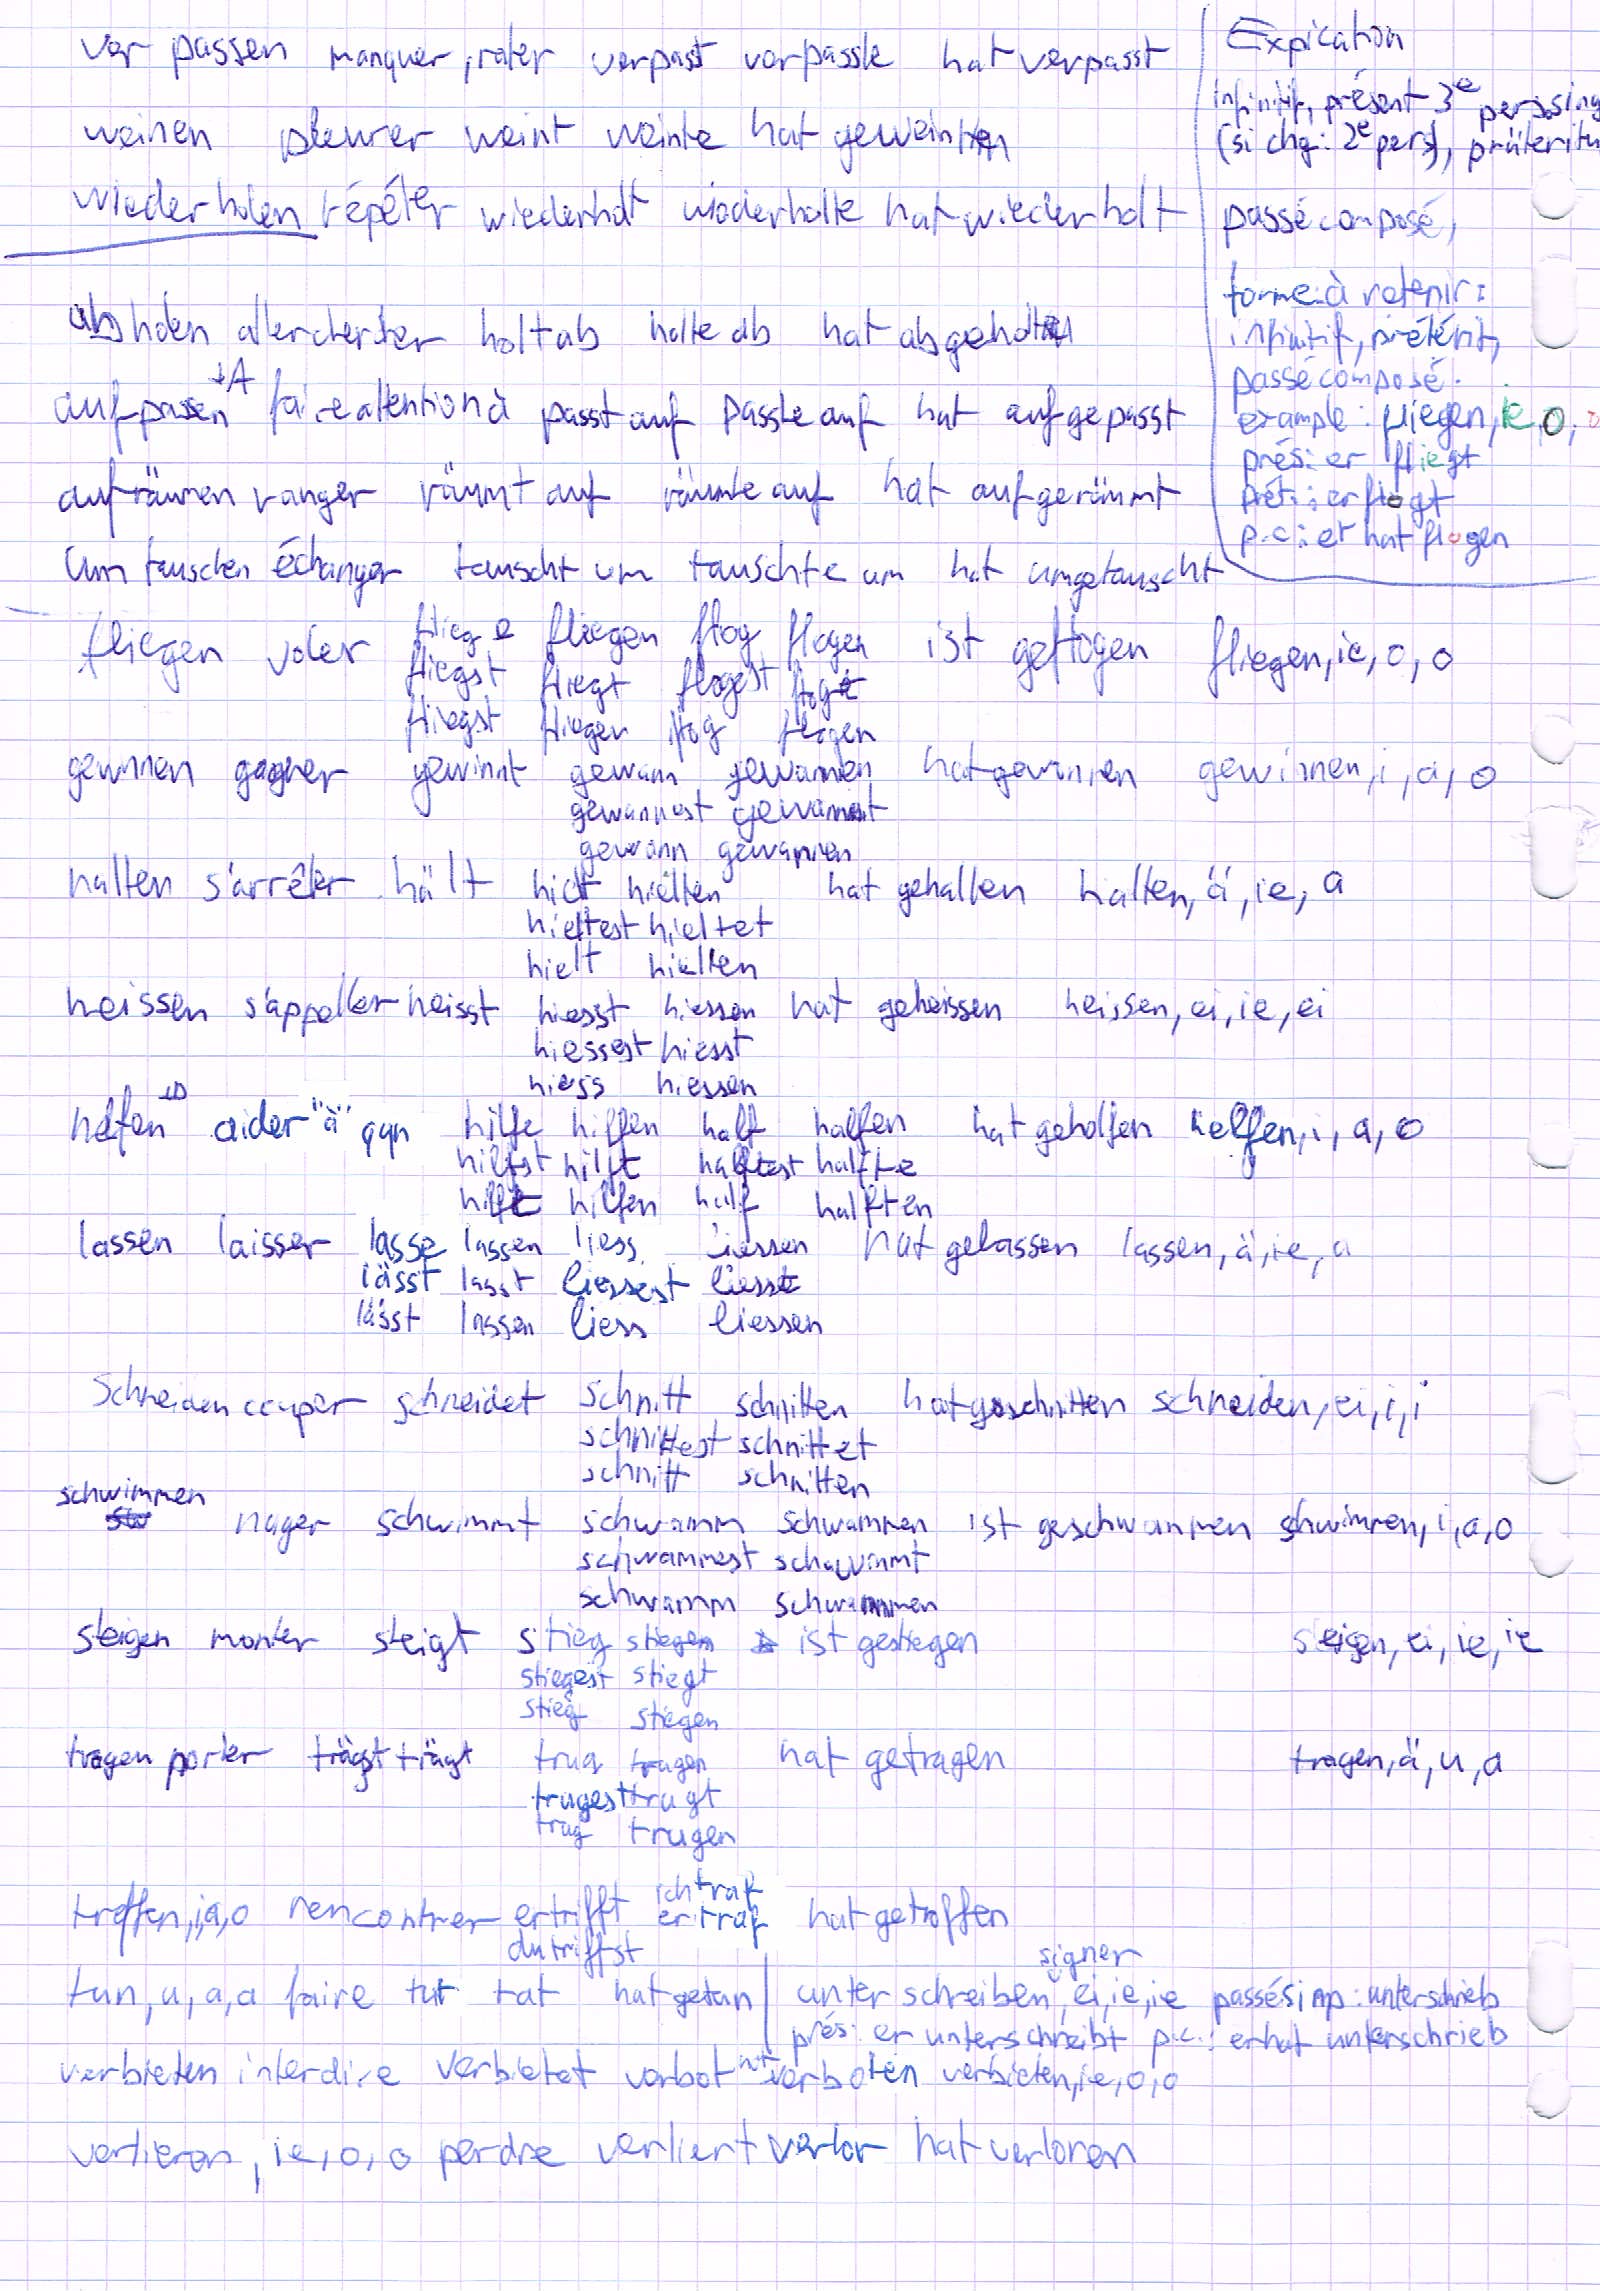 verpassen manquer, rater verpasst verpasste hat verpasst
weinen pleurer weint weinte hat geweint
wiederholen répéter wiederholt wiederholte hat wiederholt
abholen aller chercher holt ab holte ab hat abgeholt
↓A
aufpassen faire attention à passt auf passte auf hat aufgepasst
aufräumen ranger räumt auf räumte auf hat aufgeräumt
Umtauschen échanger tauscht um tauschte um hat umgetauscht
Expication
infinitif, présent 3e pers sing
(si chg: 2e pers), präteritu
passé composé,
forme à retenir:
infinitif, prétérit,
passé composé.
example: fliegen, ie, o, o
prés: er fliegt
prét: er flogt
p.c: er hat flogen
fliegen voler fliege fliegen flog flogen ist geflogen fliegen, ie, o, o
fliegst fliegt flogest flogt
fliegst fliegen flog flogen
gewinnen gagner gewinnt gewann gewannen hat gewonnen gewinnen, i, a, o
gewannest gewannt
gewann gewannen
halten s'arrêter hält hielt hielten hat gehalten halten, ä, ie, a
hieltest hieltet
hielt hielten
heissen s'appeller heisst hiesst hiessen hat geheissen heissen, ei, ie, ei
hiessest hiesst
hiess hiessen
helfen →D aider "à" qqn hilfe hilfen half halfen hat geholfen helfen, i, a, o
hilfst hilft halftest halfte
hilft hilfen half halften
lassen laisser lasse lassen liess liessen hat gelassen lassen, ä, ie, a
lässt lasst liessest liesst
lässt lassen liess liessen
Schneiden couper schneidet schnitt schnitten hat geschnitten schneiden, ei, i, i
schnittest schnittet
schnitt schnitten
schwimmen nager schwimmt schwamm schwammen ist geschwommen schwimmen, i, a, o
schwammest schwammt
schwamm schwammen
steigen monter steigt stieg stiegen ist gestiegen steigen, ei, ie, ie
stiegest stiegt
stieg stiegen
tragen porter trägst trägt trug trugen hat getragen tragen, ä, u, a
trugest trugt
trug trugen
ich traf
treffen, i, a, o rencontrer er trifft er traf hat getroffen
du triffst
signer
tun, u, a, a faire tut tat hat getan unterschreiben, ei, ie, ie passé simp: unterschrieb
prés: er unterschreibt p.c.: er hat unterschrieb
verbieten interdire verbietet verbot hat verboten verbieten, ie, o, o
verlieren, ie, o, o perdre verliert verlor hat verloren